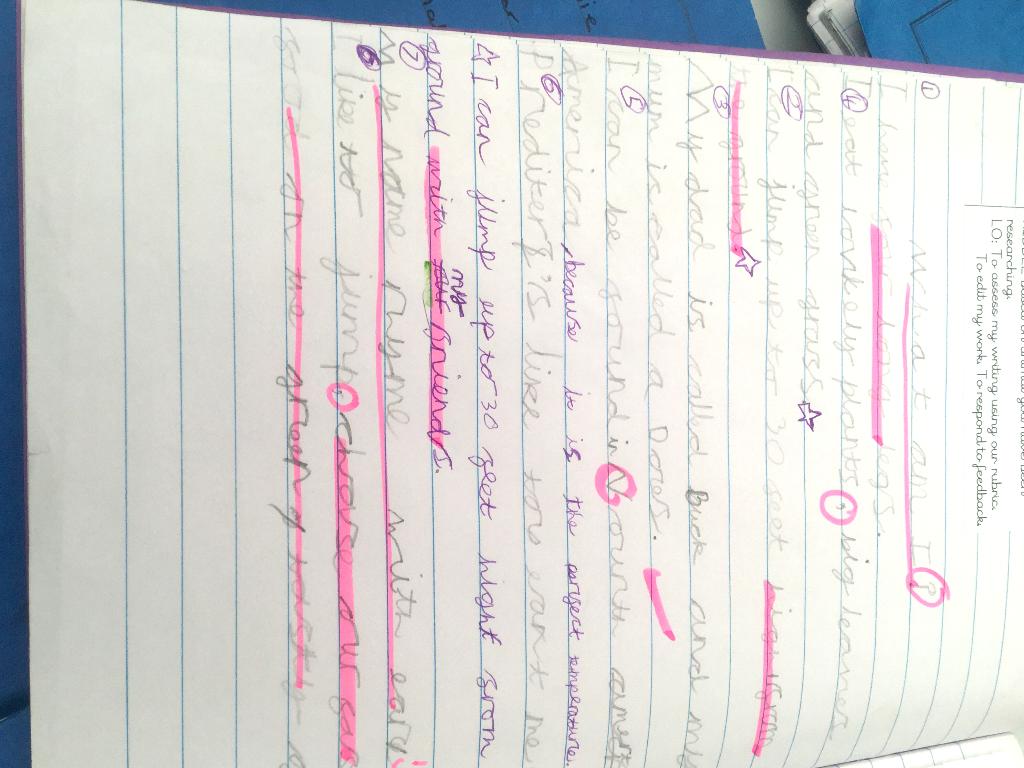 researching.
LO: To assess my writing using our rubric
To edit my work. To respond to feedback.
What am I?
①
I have four longe legs.
④
I eat lovkely plants, big leaves
and green grass ☆
②
I can jump up to 30 feet high from
the ground. ☆
③
My dad is called Buck and my
mum is called a Doer.
⑤
I can be found in North
America, because it is the perfect temperature.
⑥
Prediters like to
☆ I can jump up to 30 feet hight from
ground with my friends.
⑦
My name ryme with
⑧
I like to jump
in the green